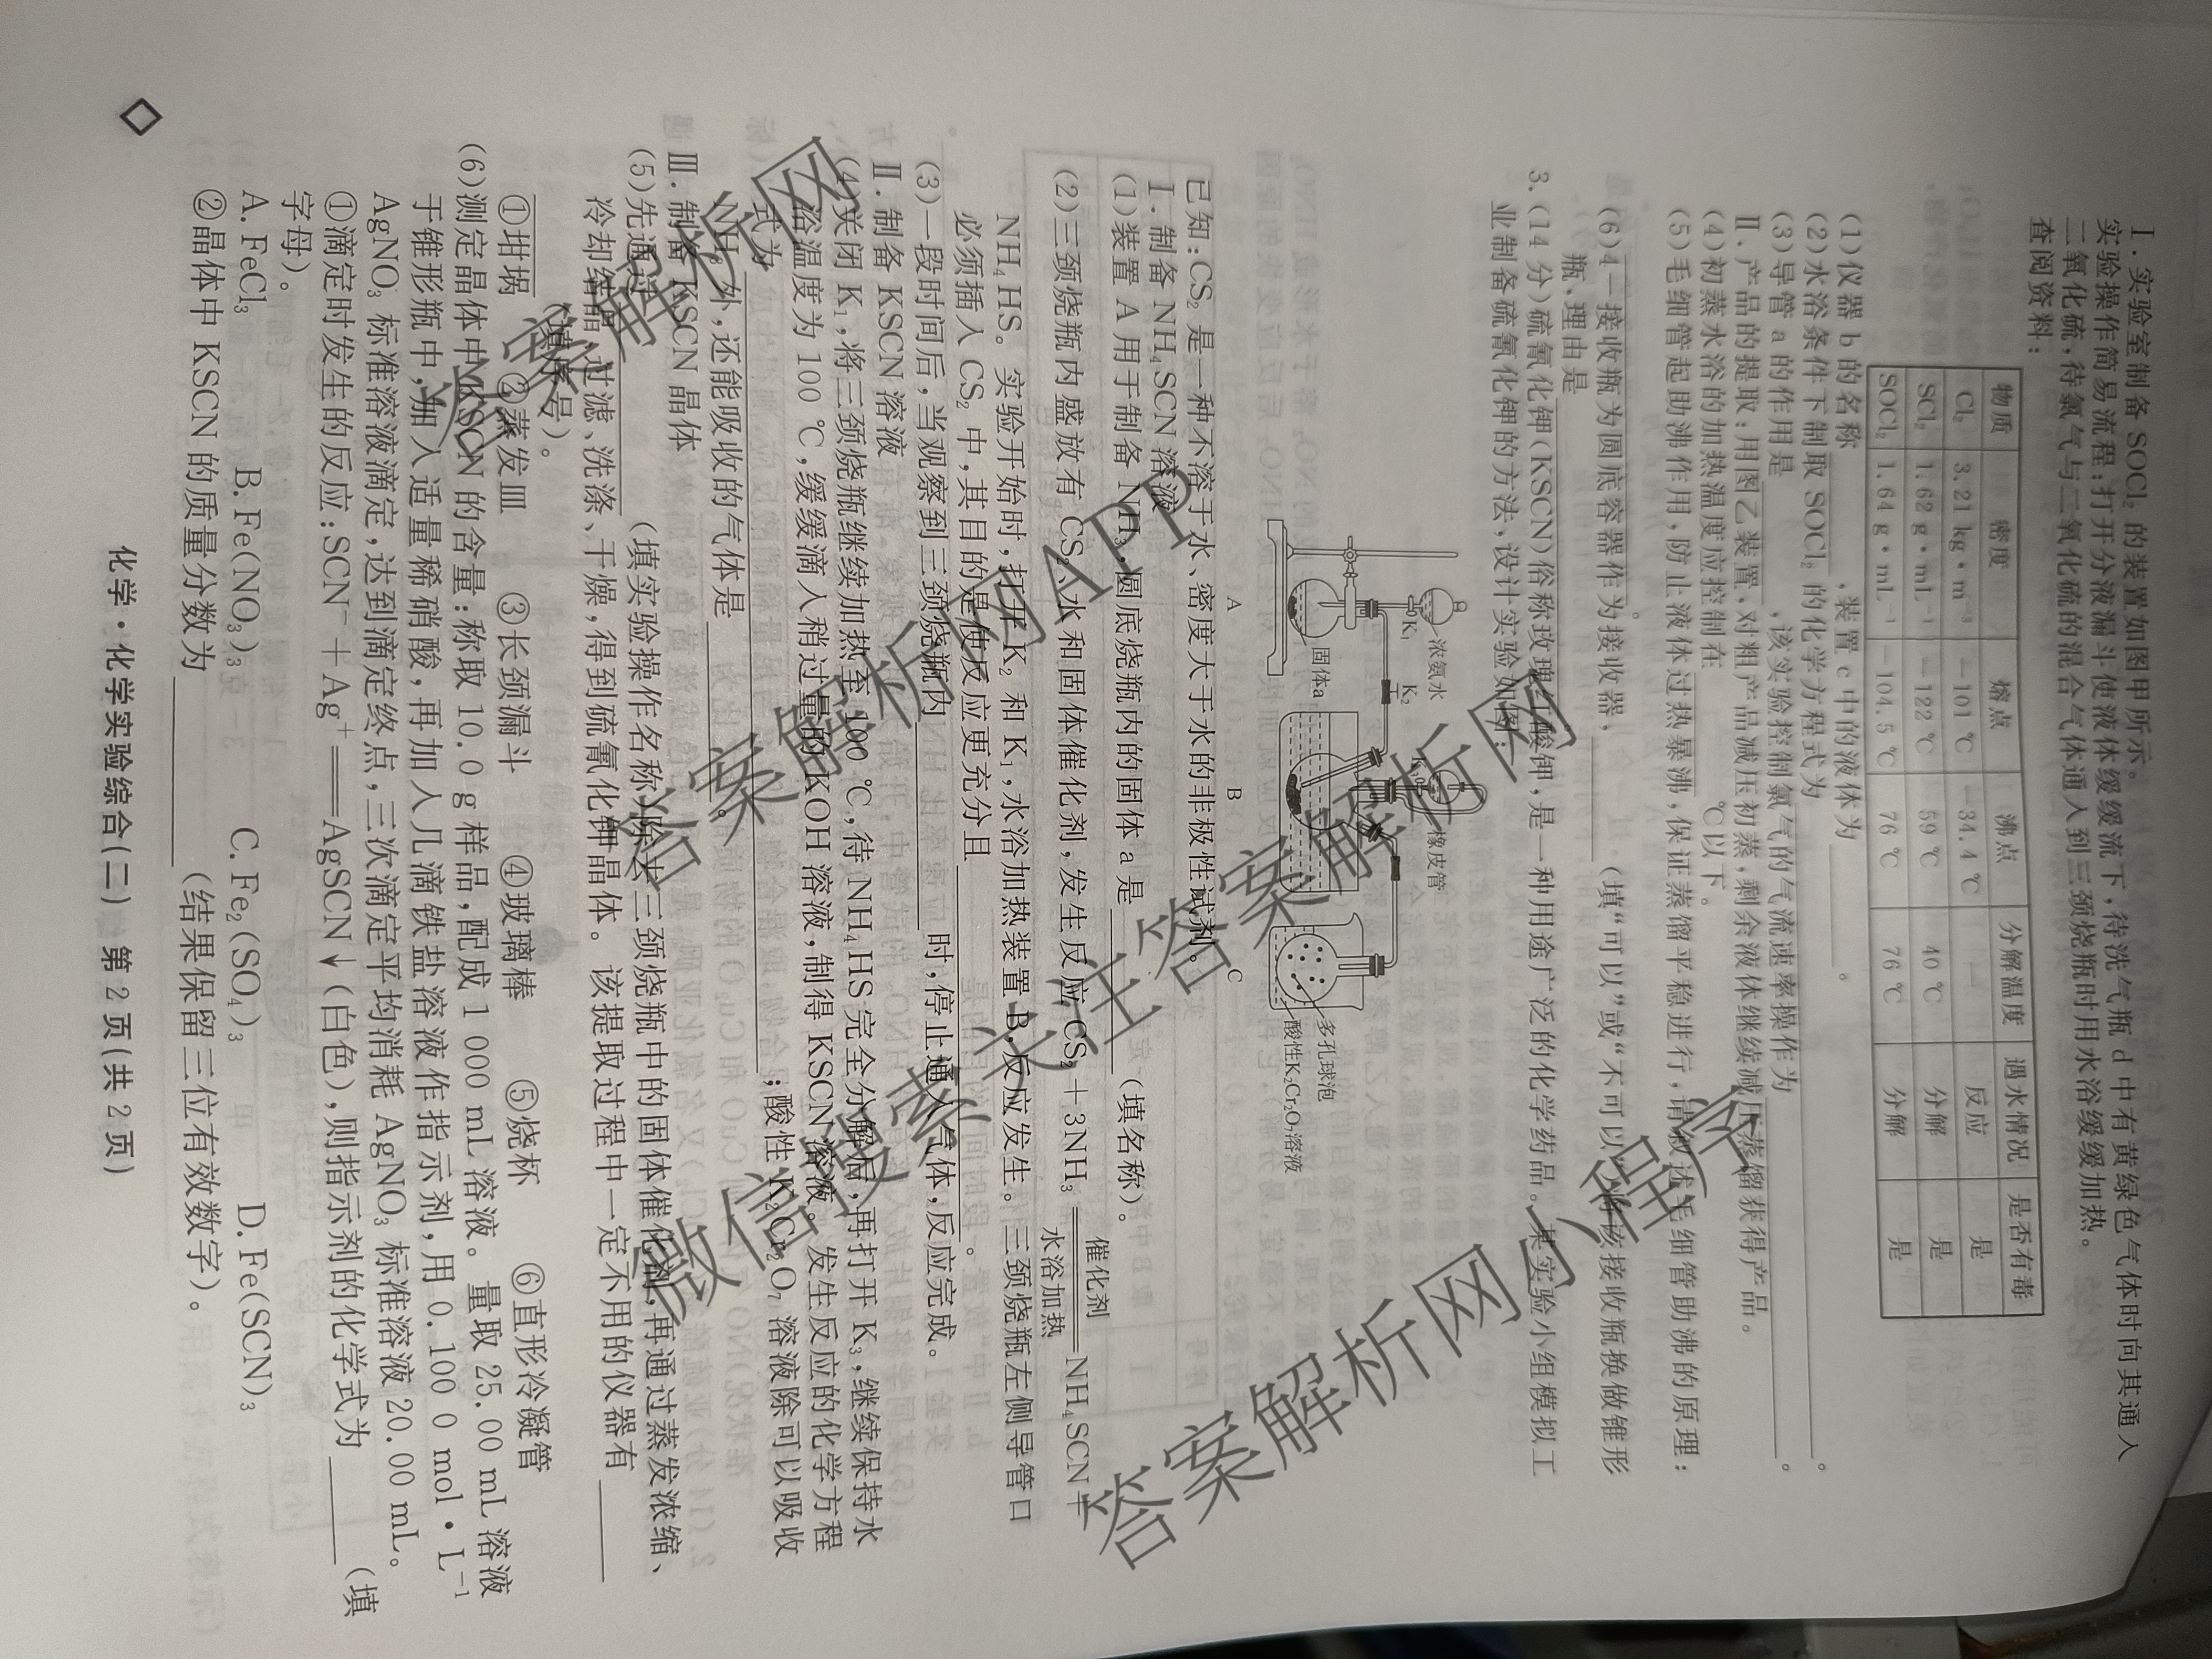 Ⅰ. 实验室制备 SOCl₂ 的装置如图甲所示。
实验操作简易流程:打开分液漏斗使液体缓缓流下,待洗气瓶 d 中有黄绿色气体时向其通入
二氧化硫,待氯气与二氧化硫的混合气体通入到三颈烧瓶时用水浴缓缓加热。
查阅资料:
物质 密度 熔点 沸点 分解温度 遇水情况 是否有毒
Cl₂ 3.21 kg·m⁻³ －101 ℃ －34.4 ℃ — 反应 是
SCl₂ 1.62 g·mL⁻¹ －122 ℃ 59 ℃ 40 ℃ 分解 是
SOCl₂ 1.64 g·mL⁻¹ －104.5 ℃ 76 ℃ 76 ℃ 分解 是
(1)仪器 b 的名称________,装置 c 中的液体为________。
(2)水浴条件下制取 SOCl₂ 的化学方程式为________。
(3)导管 a 的作用是________,该实验控制氯气的气流速率操作为________。
Ⅱ. 产品的提取:用图乙装置,对粗产品减压初蒸,剩余液体继续减压蒸馏获得产品。
(4)初蒸水浴的加热温度应控制在________℃以下。
(5)毛细管起助沸作用,防止液体过热暴沸,保证蒸馏平稳进行,请叙述毛细管助沸的原理:
________。
(6)4－接收瓶为圆底容器作为接收器,________(填“可以”或“不可以”)将该接收瓶换做锥形
瓶,理由是________。
3. (14 分)硫氰化钾(KSCN)俗称玫瑰红酸钾,是一种用途广泛的化学药品。某实验小组模拟工
业制备硫氰化钾的方法,设计实验如图:
浓氨水
K₁
K₂
固体a
橡皮管
多孔球泡
酸性K₂Cr₂O₇溶液
A B C
已知:CS₂ 是一种不溶于水、密度大于水的非极性试剂。
Ⅰ. 制备 NH₄SCN 溶液
(1)装置 A 用于制备 NH₃,圆底烧瓶内的固体 a 是________(填名称)。
(2)三颈烧瓶内盛放有 CS₂、水和固体催化剂,发生反应 CS₂＋3NH₃ ══催化剂/水浴加热══ NH₄SCN＋
NH₄HS。实验开始时,打开 K₂ 和 K₁,水浴加热装置 B,反应发生。三颈烧瓶左侧导管口
必须插入 CS₂ 中,其目的是使反应更充分且________。
(3)一段时间后,当观察到三颈烧瓶内________时,停止通入气体,反应完成。
Ⅱ. 制备 KSCN 溶液
(4)关闭 K₁,将三颈烧瓶继续加热至 100 ℃,待 NH₄HS 完全分解后,再打开 K₃,继续保持水
浴温度为 100 ℃,缓缓滴入稍过量的 KOH 溶液,制得 KSCN 溶液。发生反应的化学方程
式为________;酸性 K₂Cr₂O₇ 溶液除可以吸收
NH₃ 外,还能吸收的气体是________。
Ⅲ. 制备 KSCN 晶体
(5)先通过________(填实验操作名称)除去三颈烧瓶中的固体催化剂,再通过蒸发浓缩、
冷却结晶、过滤、洗涤、干燥,得到硫氰化钾晶体。该提取过程中一定不用的仪器有________
________(填序号)。
①坩埚 ②蒸发皿 ③长颈漏斗 ④玻璃棒 ⑤烧杯 ⑥直形冷凝管
(6)测定晶体中 KSCN 的含量:称取 10.0 g 样品,配成 1 000 mL 溶液。量取 25.00 mL 溶液
于锥形瓶中,加入适量稀硝酸,再加入几滴铁盐溶液作指示剂,用 0.100 0 mol·L⁻¹
AgNO₃ 标准溶液滴定,达到滴定终点,三次滴定平均消耗 AgNO₃ 标准溶液 20.00 mL。
①滴定时发生的反应:SCN⁻＋Ag⁺══AgSCN↓(白色),则指示剂的化学式为________(填
字母)。
A. FeCl₃ B. Fe(NO₃)₃ C. Fe₂(SO₄)₃ D. Fe(SCN)₃
②晶体中 KSCN 的质量分数为________(结果保留三位有效数字)。
化学·化学实验综合(二) 第 2 页(共 2 页)
答案解析网
答案解析网APP
微信搜索关注答案解析网
答案解析网小程序